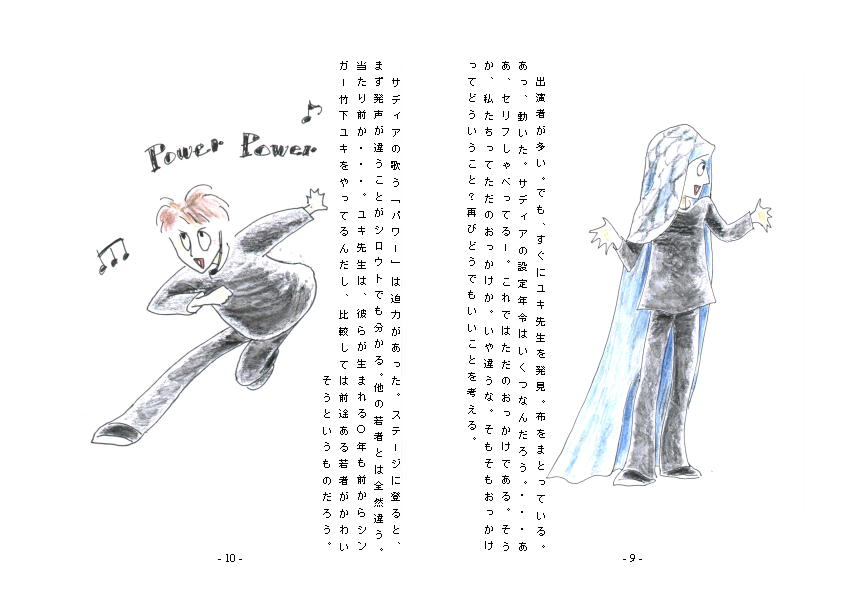 出演者が多い。でも、すぐにユキ先生を発見。布をまとっている。
あっ、動いた。サディアの設定年令はいくつなんだろう。・・・あ
あ、セリフしゃべってるー。これではただのおっかけである。そう
か、私たちってただのおっかけか。いや違うな。そもそもおっかけ
ってどういうこと？再びどうでもいいことを考える。
- 9 -
サディアの歌う「パワー」は迫力があった。ステージに登ると、
まず発声が違うことがシロウトでも分かる。他の若者とは全然違う。
当たり前か・・・。ユキ先生は、彼らが生まれる〇年も前からシン
ガー竹下ユキをやってるんだし、比較しては前途ある若者がかわい
そうというものだろう。
Power Power
- 10 -